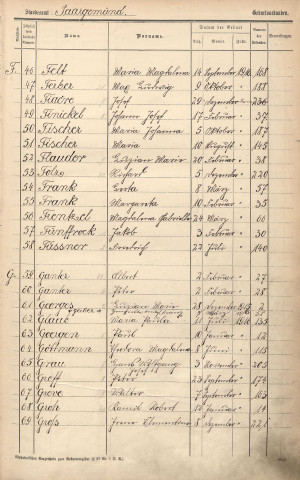 Standesamt Saargemünd. Geburtsurkunden.
Name Vorname Datum der Geburt Bemerkungen
F. 46 Felt Maria Magdalena 14 September 1916 168
47 Ferber Max Ludwig 9 Oktober " 188
48 Fiacre Josef 28 Dezember " 236
49 Finickel Johanna 17 Februar " 37
50 Fischer Maria Johanna 5 Oktober " 187
51 Fischer Maria 10 August " 145
52 Flaudor Luzian Maria 20 Februar " 38
53 Folzo Richard 5 Dezember " 220
54 Frank Erika 8 März " 57
55 Frank Margareta 10 Februar " 35
56 Magdalena Gabriella 24 März " 66
57 Fünffrock Jakob 3 Februar " 30
58 Füssner Friedrich 22 Juli " 140
G. 59 Ganter Albert 2 Februar " 27
60 Ganter Peter 2 Februar " 28
61 Georges Luzian Maria
62 Glauce Maria Paula 11 Juli 1916 133
63 Goergen Paul 10 Januar " 12
64 Gottmann Barbara Magdalena 8 Juni " 115
65 Grau Hans Wolfgang 3 November " 205
66 Groff Peter 23 September " 174
67 Grove Walter 7 September " 163
68 Groh Robert 14 Januar " 14
69 Groß Irene Clementine 8 Dezember " 221